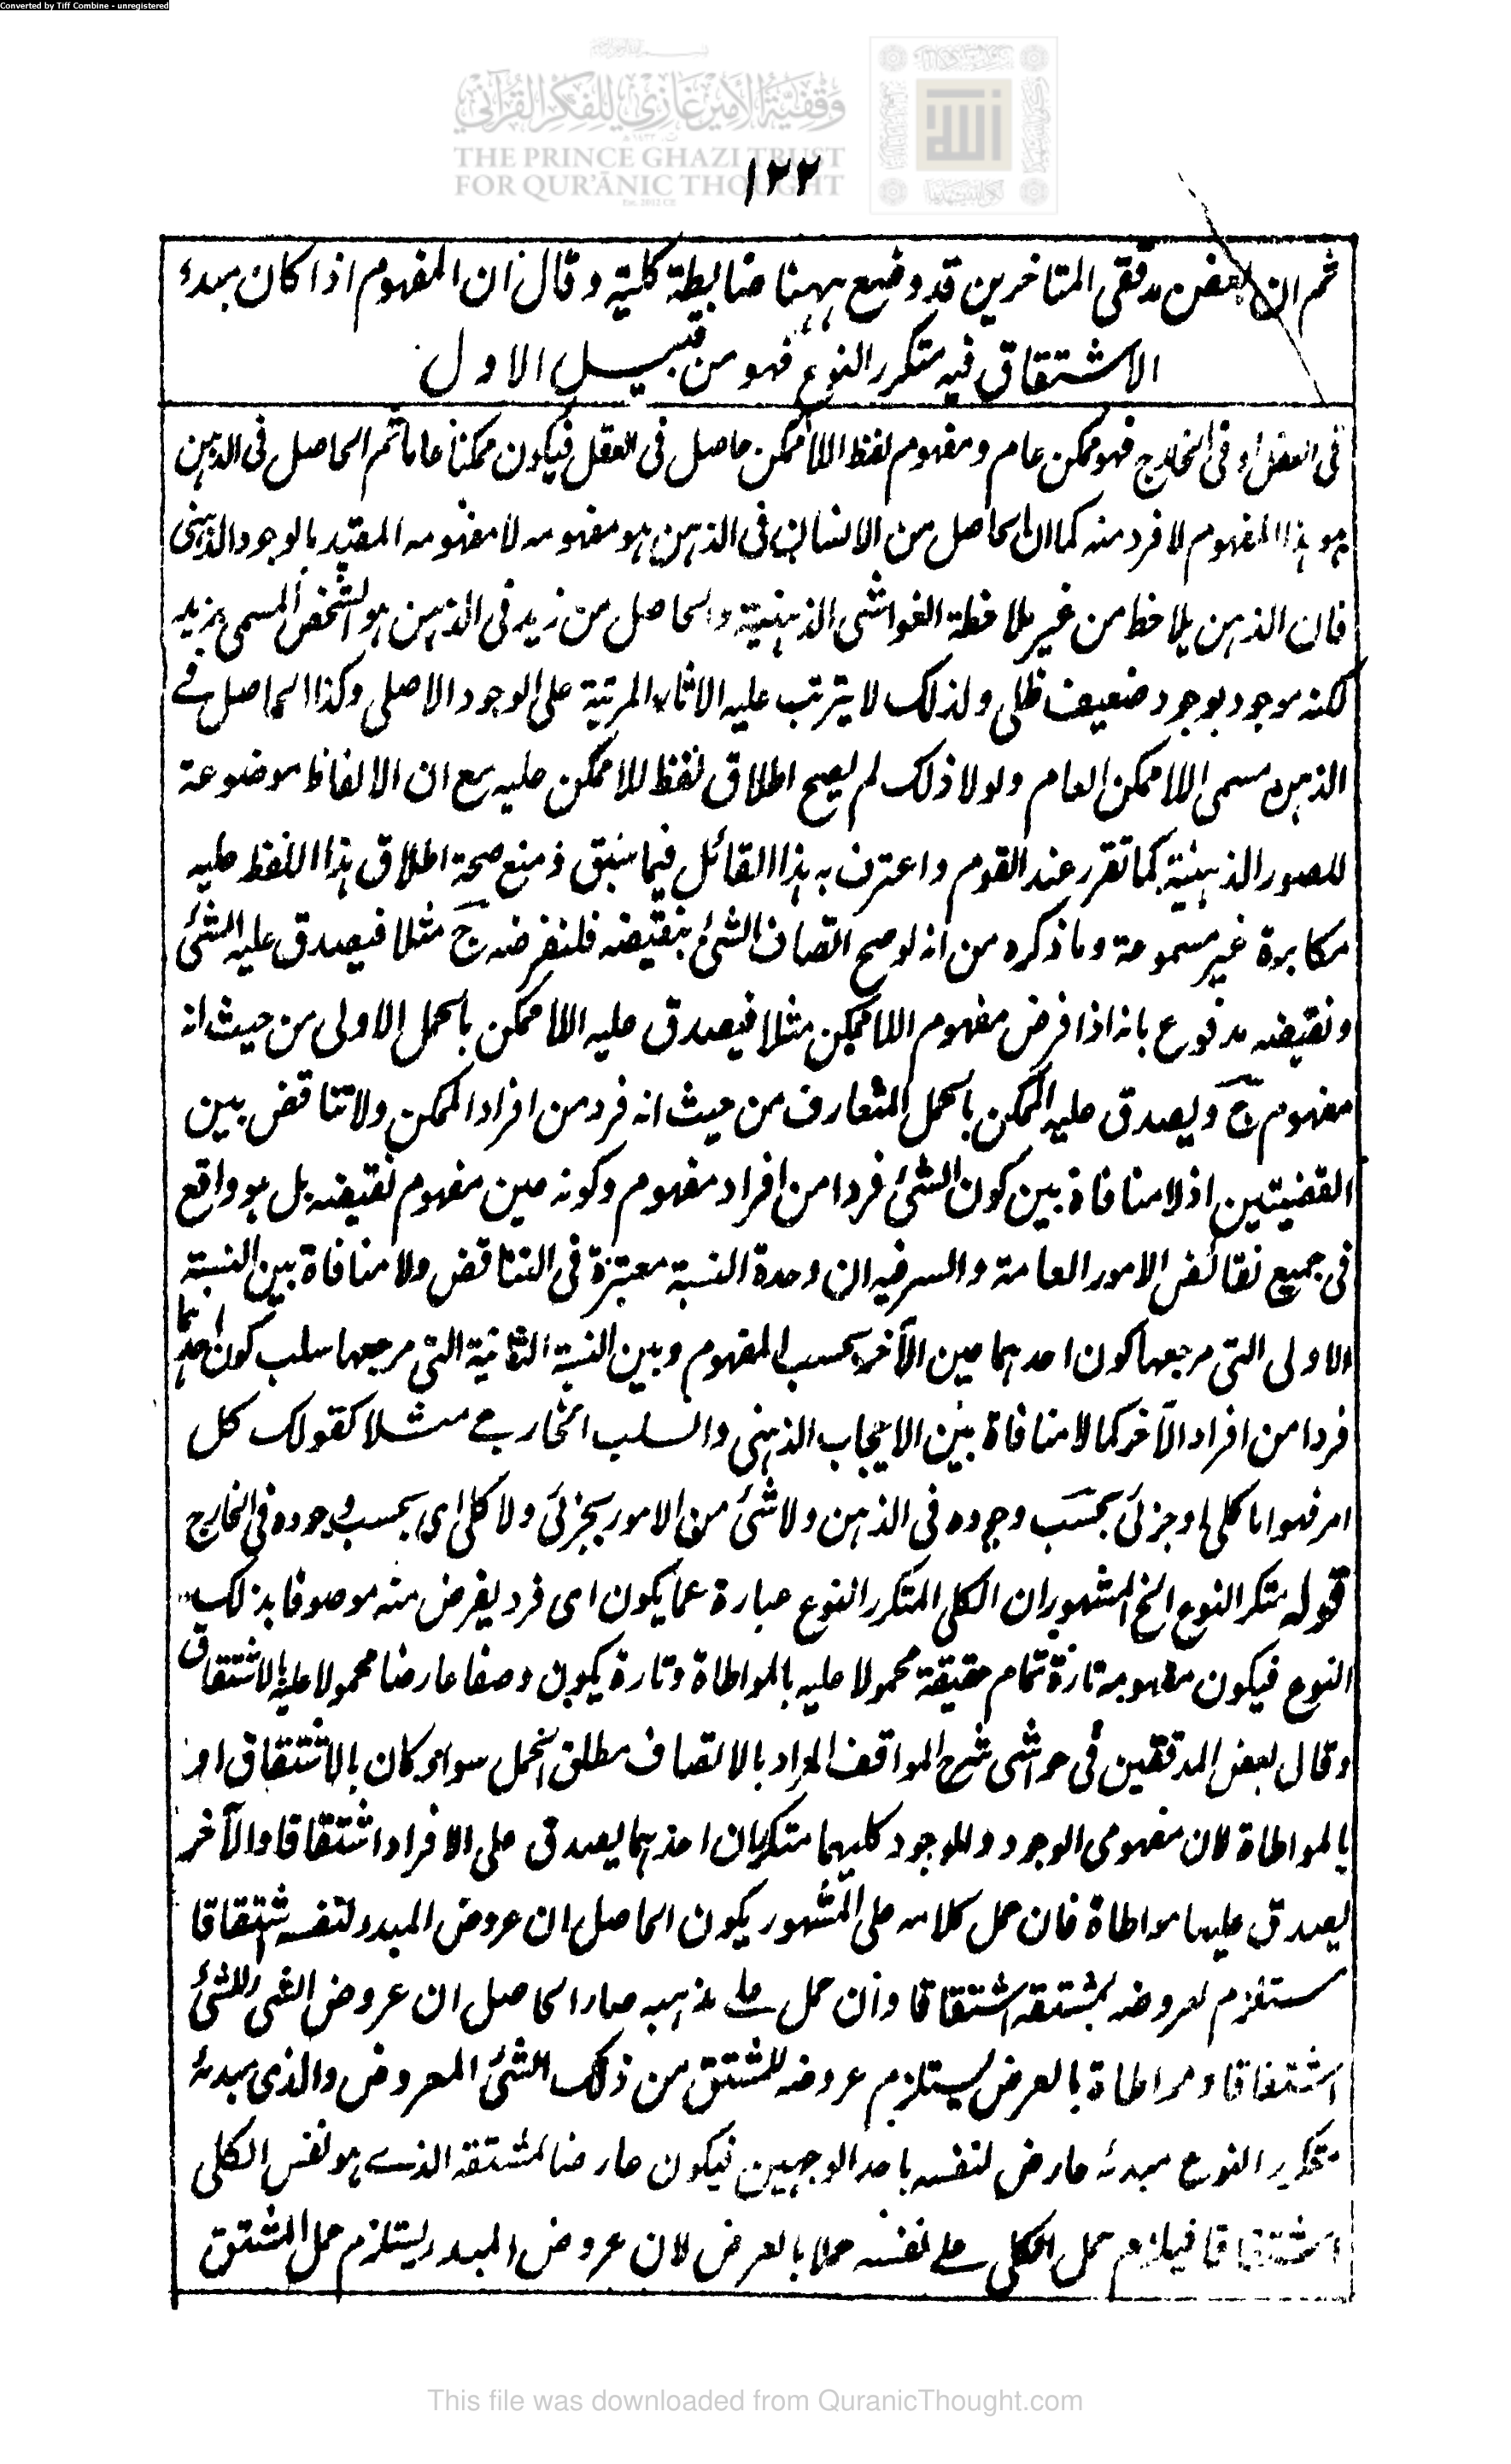 Converted by Tiff Combine - unregistered
وقفية الأمير غازي للفكر القرآني
THE PRINCE GHAZI TRUST
FOR QUR'ĀNIC THOUGHT
Est. 2012 CE
١٢٢
ثم ان بعض مدققى المتاخرين قد وضع ههنا ضابطة كلية وقال ان المفهوم اذا كان مبدء
الاشتقاق فيه متكرر النوع فهو من قبيل الاول
فى العقل او فى الخارج فهو ممكن عام ومفهوم لفظ اللاممكن حاصل فى العقل فيكون ممكنا عاما ثم الحاصل فى الذهن
هو هذا المفهوم لا فرد منه كما ان الحاصل من الانسان فى الذهن هو مفهومه لا مفهومه المقيد بالوجود الذهنى
فان الذهن يلاحظ من غير ملاحظة الغواشى الذهنية والحاصل من زيد فى الذهن هو الشخص المسمى بزيد
لكنه موجود بوجود ضعيف ظلى ولذلك لا يترتب عليه الاثار المرتبة على الوجود الاصلى وكذا الحاصل فے
الذهن مسمى اللاممكن العام ولولا ذلك لم يصح اطلاق لفظ للاممكن عليه مع ان الالفاظ موضوعة
للصور الذهنية كما تقرر عند القوم واعترف به هذا القائل فيما سبق فمنع صحة اطلاق هذا اللفظ عليه
مكابرة غير مسموعة وما ذكره من انه لو صح اتصاف الشئ بنقيضه فلنفرضه ج مثلا فيصدق عليه الشئ
ونقيضه مدفوع بانه اذا فرض مفهوم اللاممكن مثلا فيصدق عليه اللاممكن بالحمل الاولى من حيث انه
مفهوم ج ويصدق عليه الممكن بالحمل المتعارف من حيث انه فرد من افراد الممكن ولا تناقض بين
القضيتين اذ لا منافاة بين كون الشئ فردا من افراد مفهوم وكونه عين مفهوم نقيضه بل هو واقع
فى جميع نقائض الامور العامة والسر فيه ان وحدة النسبة معتبرة فى التناقض ولا منافاة بين النسبة
الاولى التى مرجعها كون احدهما عين الآخر بحسب المفهوم وبين النسبة الثانية التى مرجعها سلب كون احدهما
فردا من افراد الآخر كما لا منافاة بين الايجاب الذهنى والسلب الخارجے مثلا كقولك كل
امر فهو اما كلى او جزئى بحسب وجوده فى الذهن ولا شئ من الامور بجزئى ولا كلى اى بحسب وجوده فى الخارج
قوله متكرر النوع الخ المشهور ان الكلى المتكرر النوع عبارة عما يكون اى فرد يفرض منه موصوفا بذلك
النوع فيكون مفهومه تارة تمام حقيقة محمولا عليه بالمواطاة وتارة يكون وصفا عارضا محمولا عليه بالاشتقاق
وقال بعض المدققين فى حواشى شرح المواقف المراد بالاتصاف مطلق الحمل سواء كان بالاشتقاق او
بالمواطاة لان مفهومى الوجود والموجود كليهما متكرران احدهما يصدق على الافراد اشتقاقا والآخر
يصدق عليها مواطاة فان حمل كلامه على المشهور يكون الحاصل ان عروض المبدء لنفسه اشتقاقا
مستلزم لعروضه لمشتقه اشتقاقا وان حمل علے مذهبه صار الحاصل ان عروض الشى للشئ
اشتقاقا ومواطاة بالعرض يستلزم عروضه للمشتق من ذلك الشئ المعروض والذى مبدئه
متكرر النوع مبدئه عارض لنفسه باحد الوجهين فيكون عارضا لمشتقه الذے هو نفس الكلى
اشتقاقا فيلزم حمل الكلى علے نفسه حملا بالعرض لان عروض المبدء يستلزم حمل المشتق
This file was downloaded from QuranicThought.com